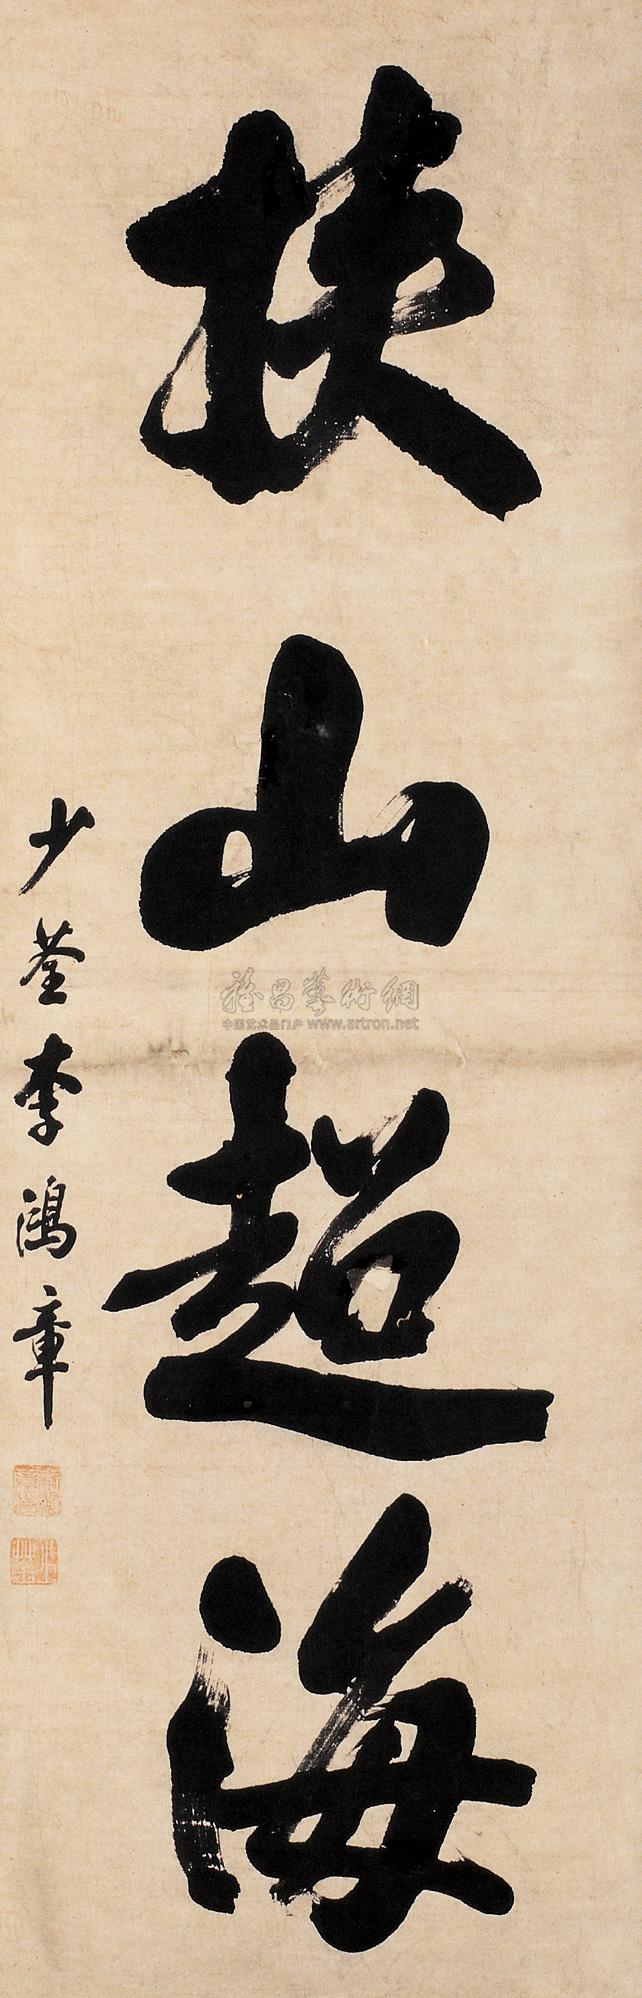 挟山超海
少荃李鴻章
雅昌藝術網
中国艺术品门户 www.artron.net